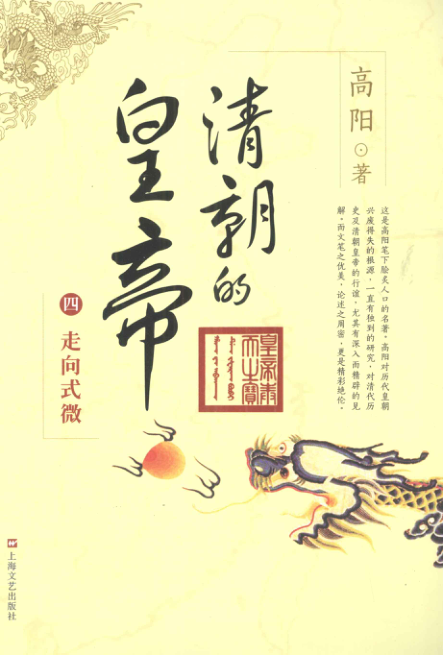 高阳⊙著
清朝的
皇帝
四 走向式微
这是高阳笔下脍炙人口的名著。高阳对历代皇朝
兴废得失的根源，一直有独到的研究，对清代历
史及清朝皇帝的行谊，尤其有深入而精辟的见
解。而文笔之优美，论述之周密，更是精彩绝伦。
皇帝奉
天之寶
上海文艺出版社